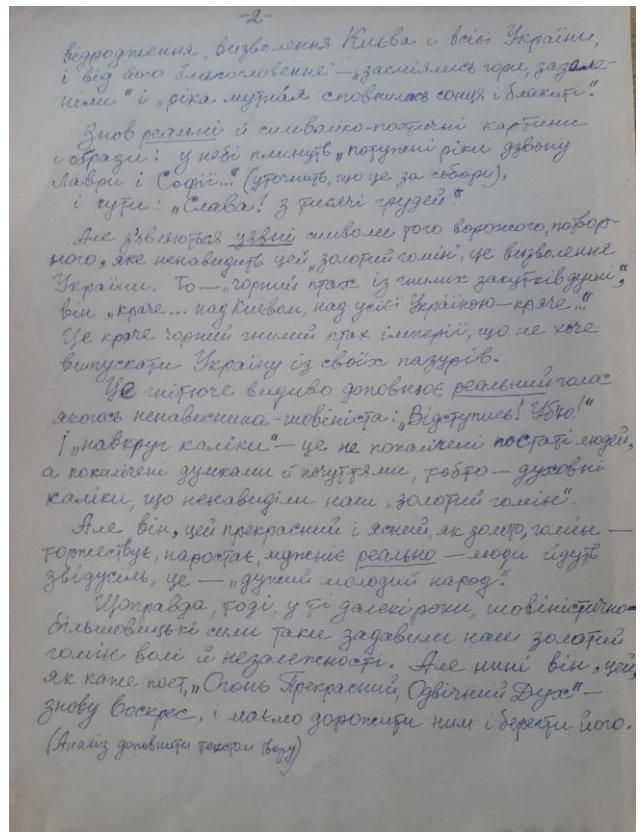 -2-
відродження, визволення Києва і всієї України,
і від його благословення — „засміялись гори, зазеле-
ніли“ і „ріка мутная сповнилась сонця і блакиті“.
Знов реальні й символіко-поетичні картини
і образи: у небі пливуть „потужні ріки дзвону
Лаври і Софії...“ (уточнить, що це за собори),
і чути: „Слава! з тисячі грудей“.
Але з'являються уявні символи того ворожого, потвор-
ного, яке ненавидить цей „золотий гомін“, це визволення
України. То — „чорний птах із гнилих закутків душі“,
він „кряче... над Києвом, над усією Україною — кряче...“
Це кряче чорний гнилий птах імперії, що не хоче
випускати Україну із своїх пазурів.
Це гнітюче видиво доповнює реальний голос
якогось ненависника-шовініста: „Відступись! Уб'ю!“
І „навкруг каліки“ — це не покалічені постаті людей,
а покалічені думками й почуттями, тобто — духовні
каліки, що ненавиділи наш „золотий гомін“.
Але він, цей прекрасний і ясний, як золото, гомін —
торжествує, наростає, мужніє реально — люди йдуть
звідусіль, це — „дужий молодий народ“.
Щоправда, тоді, у ті далекі роки, шовіністично-
більшовицькі сили таки задавили наш золотий
гомін волі й незалежності. Але нині він, цей,
як каже поет, „Огонь Прекрасний, Одвічний Дух“ —
знову воскрес, і маємо дорожити ним і берегти його.
(Аналіз доповнити текстом твору)